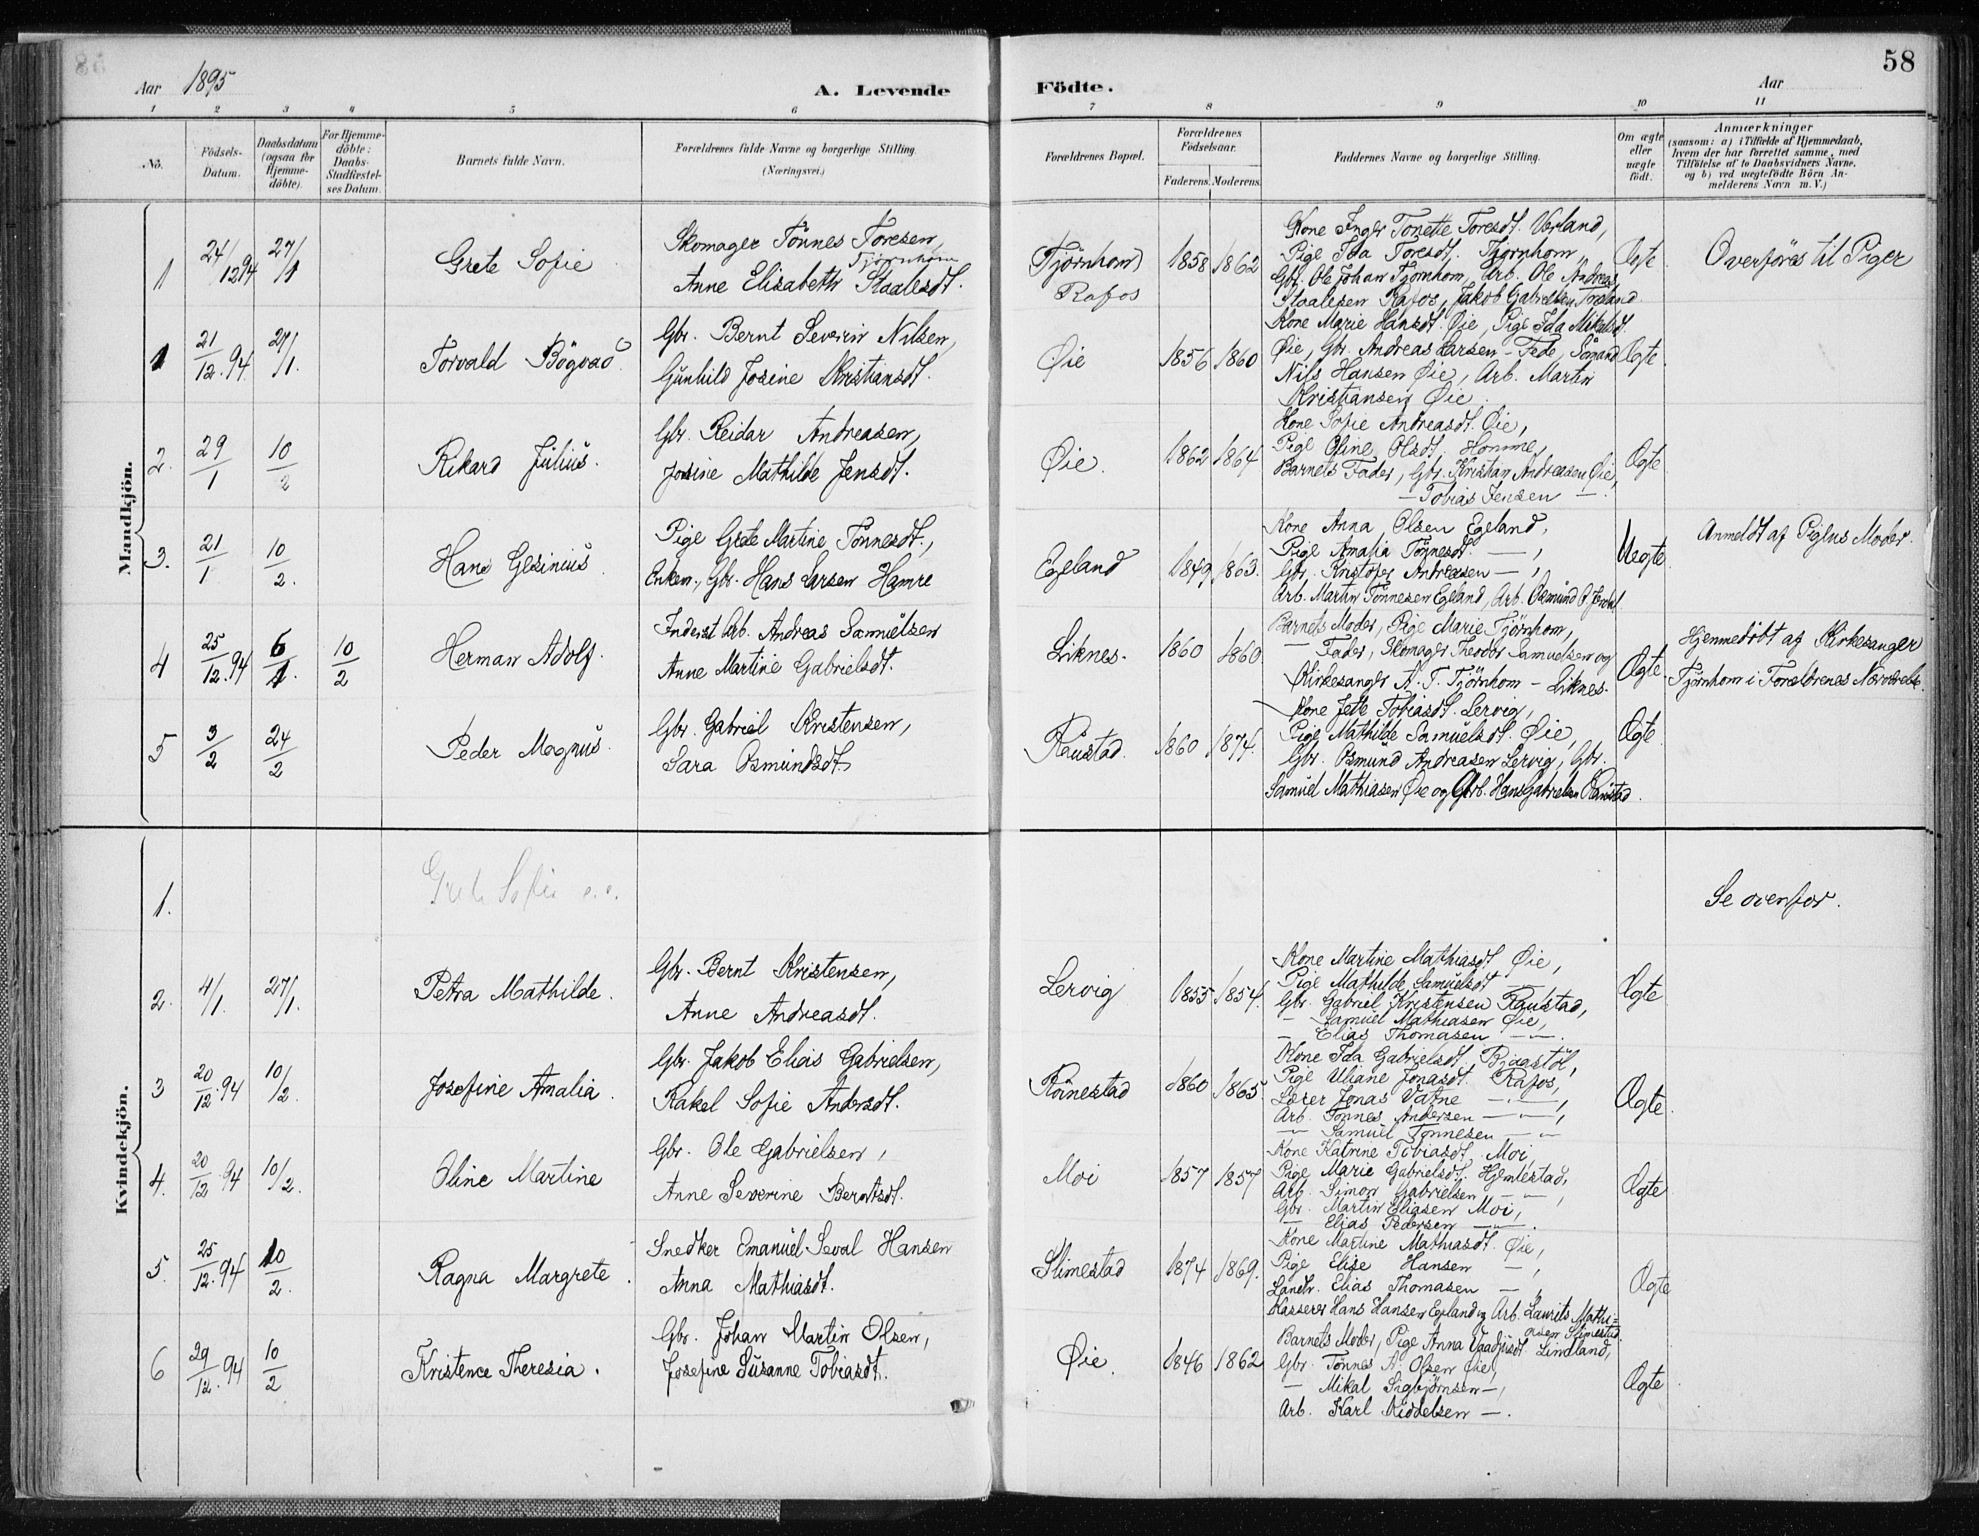 58
Aar 1895
A. Levende
Födte.
Aar
1 2 3 4 5 6 7 8 9 10 11
No.
Födsels-
Datum.
Daabsdatum
(ogsaa for
Hjemme-
döbte).
For Hjemme-
döbte:
Daabs-
Stadfæstel-
ses Datum.
Barnets fulde Navn.
Forældrenes fulde Navne og borgerlige Stilling.
(Næringsvei.)
Forældrenes Bopæl.
Forældrenes
Födselsaar.
Faderens. Moderens.
Faddernes Navne og borgerlige Stilling.
Om ægte
eller
uægte
födt.
Anmærkninger
(saasom: a) i Tilfælde af Hjemmedaab,
hvem der har forrettet samme, med
Tilföielse af to Daabsvidners Navne.
og b) ved uægtefödte Börn An-
melderens Navn m. V.)
Mandkjön.
1
24/12 94
27/1
Grete Sofie
Skomager Tönnes Toresen,
Tjørnhom
Anne Elisabeth Staalesdt.
Tjørnhom
Rafos
1858 1862
Kone Inger Tonette Toresdt. Verland,
Pige Ida Toresdt. Tjørnhom
Gbr. Ole Johan Tjørnhom, Arb. Ole Andreas
Staalesen Rafos, Jakob Gabrielsen Torsland
Ægte
Overföres til Piger
1
21/12. 94.
27/1.
Torvald Bögvad
Gbr. Bernt Severin Nilsen,
Gunhild Josine Kristiansdt.
Øie
1856 1860
Kone Marie Hansdt. Øie, Pige Ida Mikalsdt.
Øie, Gbr. Andreas Larsen - Fede, Sömand
Nils Hansen Øie, Arb. Martin
Kristiansen Øie.
Ægte
2.
29/1
10/2
Rikard Julius.
Gbr. Reidar Andreasen,
Josine Mathilde Jensdt.
Øie.
1862 1864
Kone Sofie Andreasdt. Øie,
Pige Oline Olsdt. Homme,
Barnets Fader, Gbr. Kristian Andreasen Øie,
— Tobias Jensen —.
Ægte
3.
21/1
10/2.
Hans Gesinius
Pige Grete Martine Tönnesdt.,
Enkem., Gbr. Hans Larsen Hamre
Egeland
1849 1863.
Kone Anna Olsen Egeland,
Pige Amalia Tönnesdt. —,
Gbr. Kristofer Andreasen —,
Arb. Martin Tönnesen Egeland, Arb. Osmund
Uegte
Anmeldt af Pigens Moder.
4
25/12. 94
6/1.
10/2
Herman Adolf.
Inderst Arb. Andreas Samuelsen
Anne Martine Gabrielsdt.
Liknes.
1860 1860
Barnets Moder, Pige Marie Tjörnhom,
— Fader, Skomager Theodor Samuelsen og
Kirkesanger A. T. Tjörnhom - Liknes.
Ægte
Hjemmedöbt af Kirkesanger
Tjörnhom i Forældrenes Nærværelse.
5
3/2
24/2
Peder Magnus
Gbr. Gabriel Kristensen,
Sara Osmundsdt.
Raustad.
1860 1874.
Kone Jette Tobiasdt. Lervig,
Pige Mathilde Samuelsdt. Øie,
Gbr. Osmund Andreasen Lervig, Gbr.
Samuel Mathiasen Øie og Gbr. Hans Gabrielsen Raustad.
Ægte
Kvindekjön.
1.
Grete Sofie
Se ovenfor.
2.
4/1.
27/1.
Petra Mathilde.
Gbr. Bernt Kristensen,
Anne Andreasdt.
Lervig
1855 1854.
Kone Martine Mathiasdt. Øie,
Pige Mathilde Samuelsdt —
Gbr. Gabriel Kristensen Raustad,
— Samuel Mathiasen Øie,
— Elias Thomasen —.
Ægte
3
20/12. 94
10/2.
Josefine Amalia.
Gbr. Jakob Elias Gabrielsen,
Rakel Sofie Andersdt.
Röinestad
1860 1865.
Kone Ida Gabrielsdt. Bjaastöl,
Pige Uliane Jonasdt. Rafos,
Lærer Jonas Vatne —,
Arb. Tönnes Andersen —,
— Samuel Tönnesen —
Ægte
4.
20/12 94
10/2.
Oline Martine
Gbr. Ole Gabrielsen,
Anne Severine Berntsdt.
Moi
1857 1857
Kone Katrine Tobiasdt. Moi,
Pige Marie Gabrielsdt. Hjemlestad,
Arb. Simon Gabrielsen —,
Gbr. Martin Eliasen Moi,
— Elias Pedersen —.
Ægte
5.
25/12. 94
10/2.
Ragna Margrete.
Snedker Emanuel Seval Hansen
Anna Mathiasdt.
Slimestad
1874 1869.
Kone Martine Mathiasdt. Øie,
Pige Elise Hansen —,
Landhr. Elias Thomasen —,
Kasserer Hans Hansen Egeland og Arb. Laurits Mathi-
asen Slimestad.
Ægte
6
29/12. 94
10/2
Kristence Theresia.
Gbr. Johan Martin Olsen,
Josefine Susanne Tobiasdt.
Øie.
1846 1862
Barnets Moder, Pige Anna Lindland,
Gbr. Tönnes A. Olsen Øie,
— Mikal Sigbjörnsen —,
Arb. Karl Kiddelsen —.
Ægte